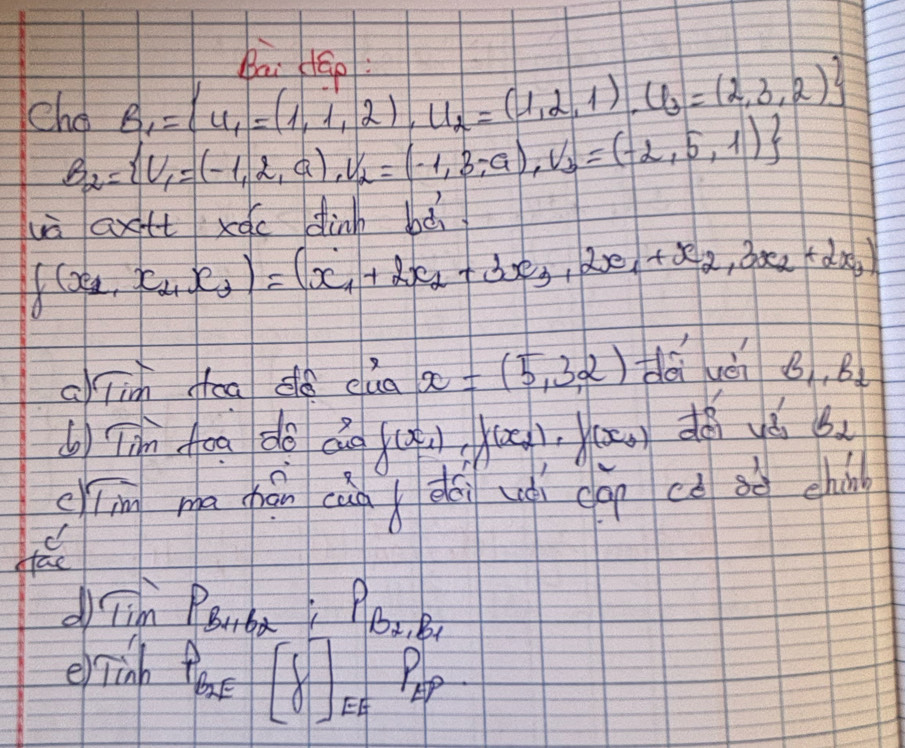 Bài tập :
Cho B₁ = { u₁ = (1, 1, 2), u₂ = (1, 2, 1), u₃ = (2, 3, 2) }
B₂ = { V₁ = (-1, 2, a), V₂ = (-1, 3, -a), V₃ = (-2, 5, 1) }
và axtt xác định bởi.
f(x₁, x₂, x₃) = (x₁ + 2x₂ + 3x₃, 2x₁ + x₂, 3x₂ + 2x₃)
a) Tìm toạ độ của x = (5, 3, 2) đối với B₁, B₂
b) Tìm toạ độ của f(x₁), f(x₂), f(x₃) đối với B₂
c) Tìm ma trận của f đối với cặp cơ sở chính
tắc
d) Tìm P_B₁,B₂ ; P_B₂,B₁
e) Tính P_B₂E [f]_EE P_EP.